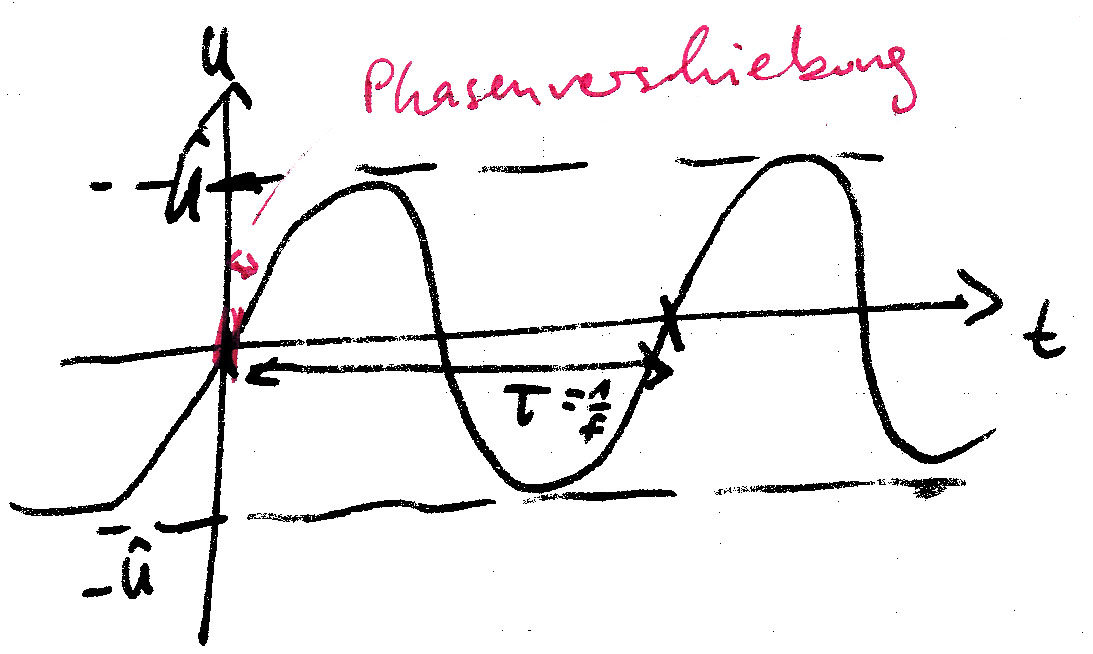 u
Phasenverschiebung
û
t
T = 1/f
-û